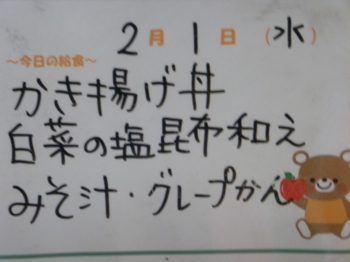 2月1日(水)
～今日の給食～
かき揚げ丼
白菜の塩昆布和え
みそ汁・グレープかん